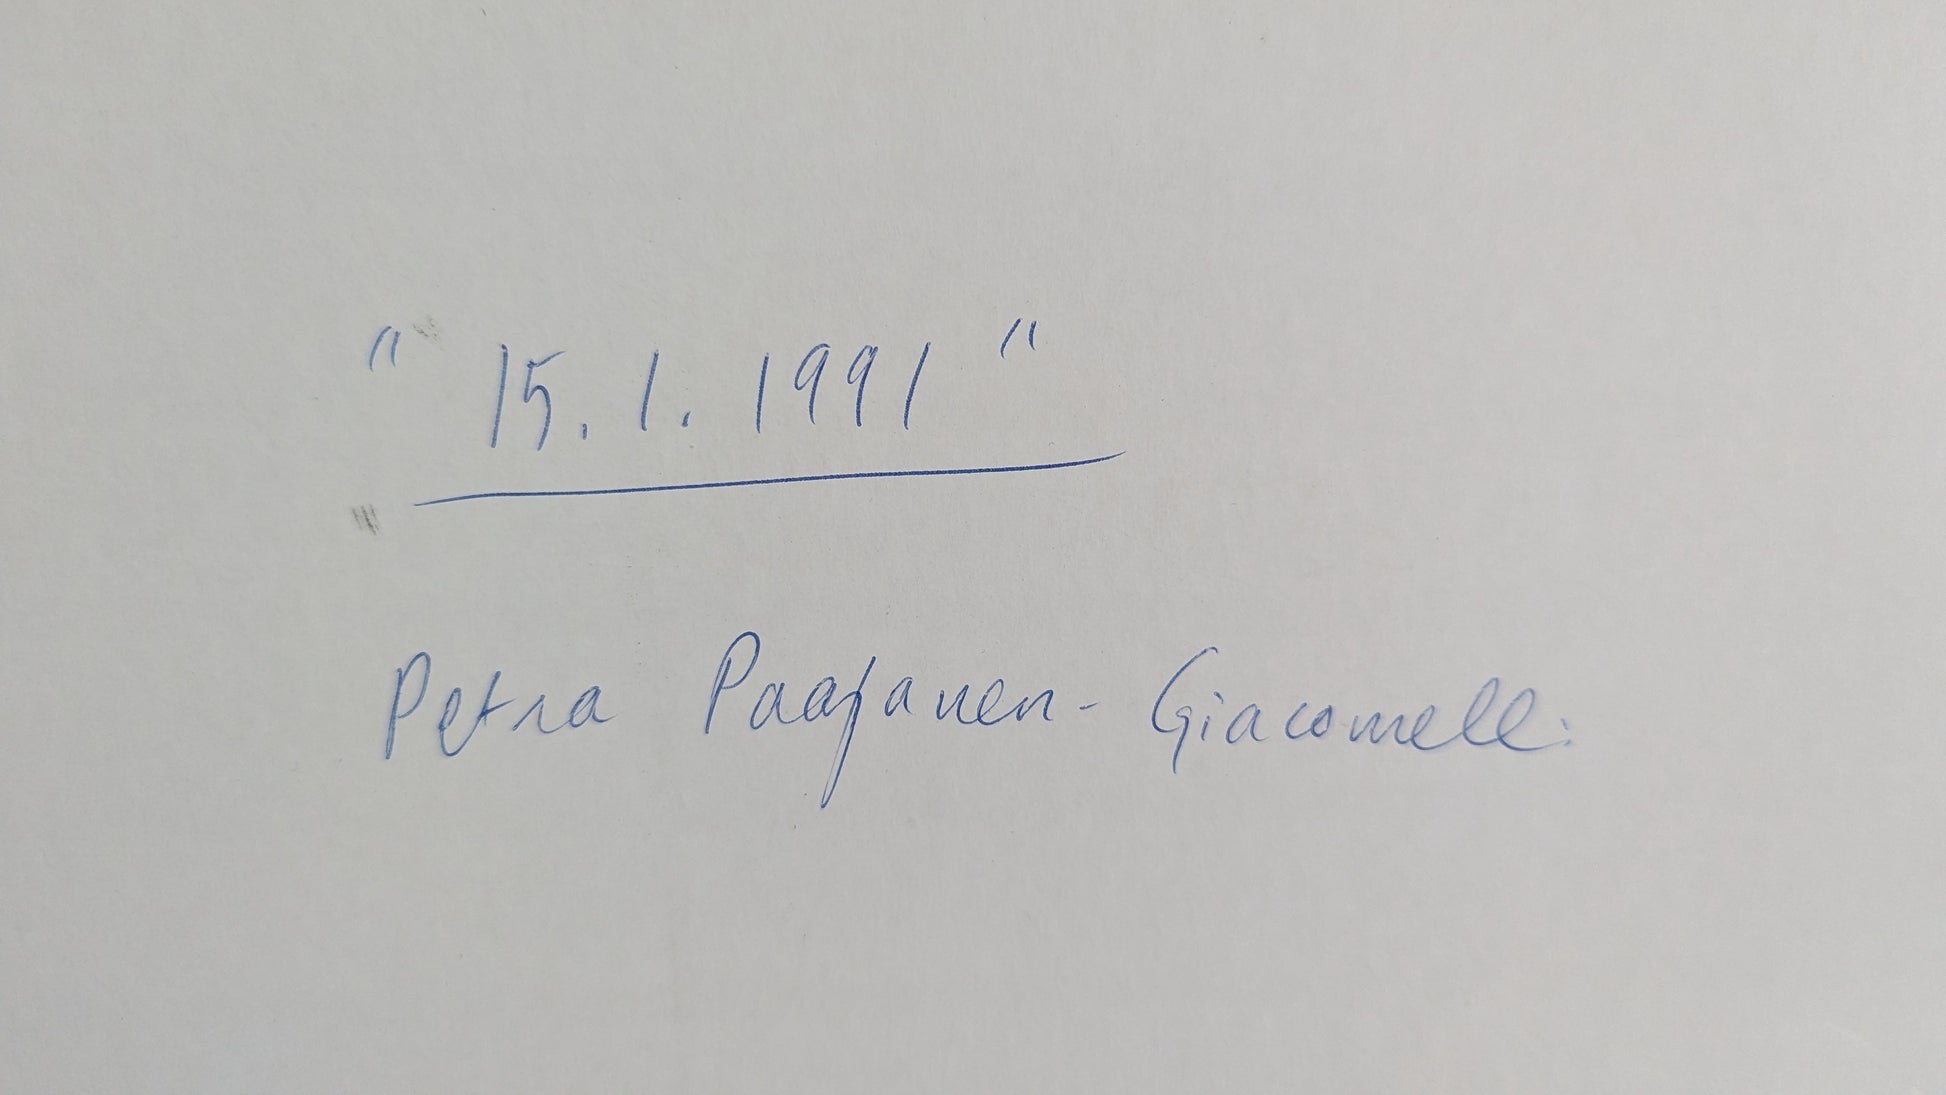 " 15.1.1991 "
Petra Paajanen-Giacomelli